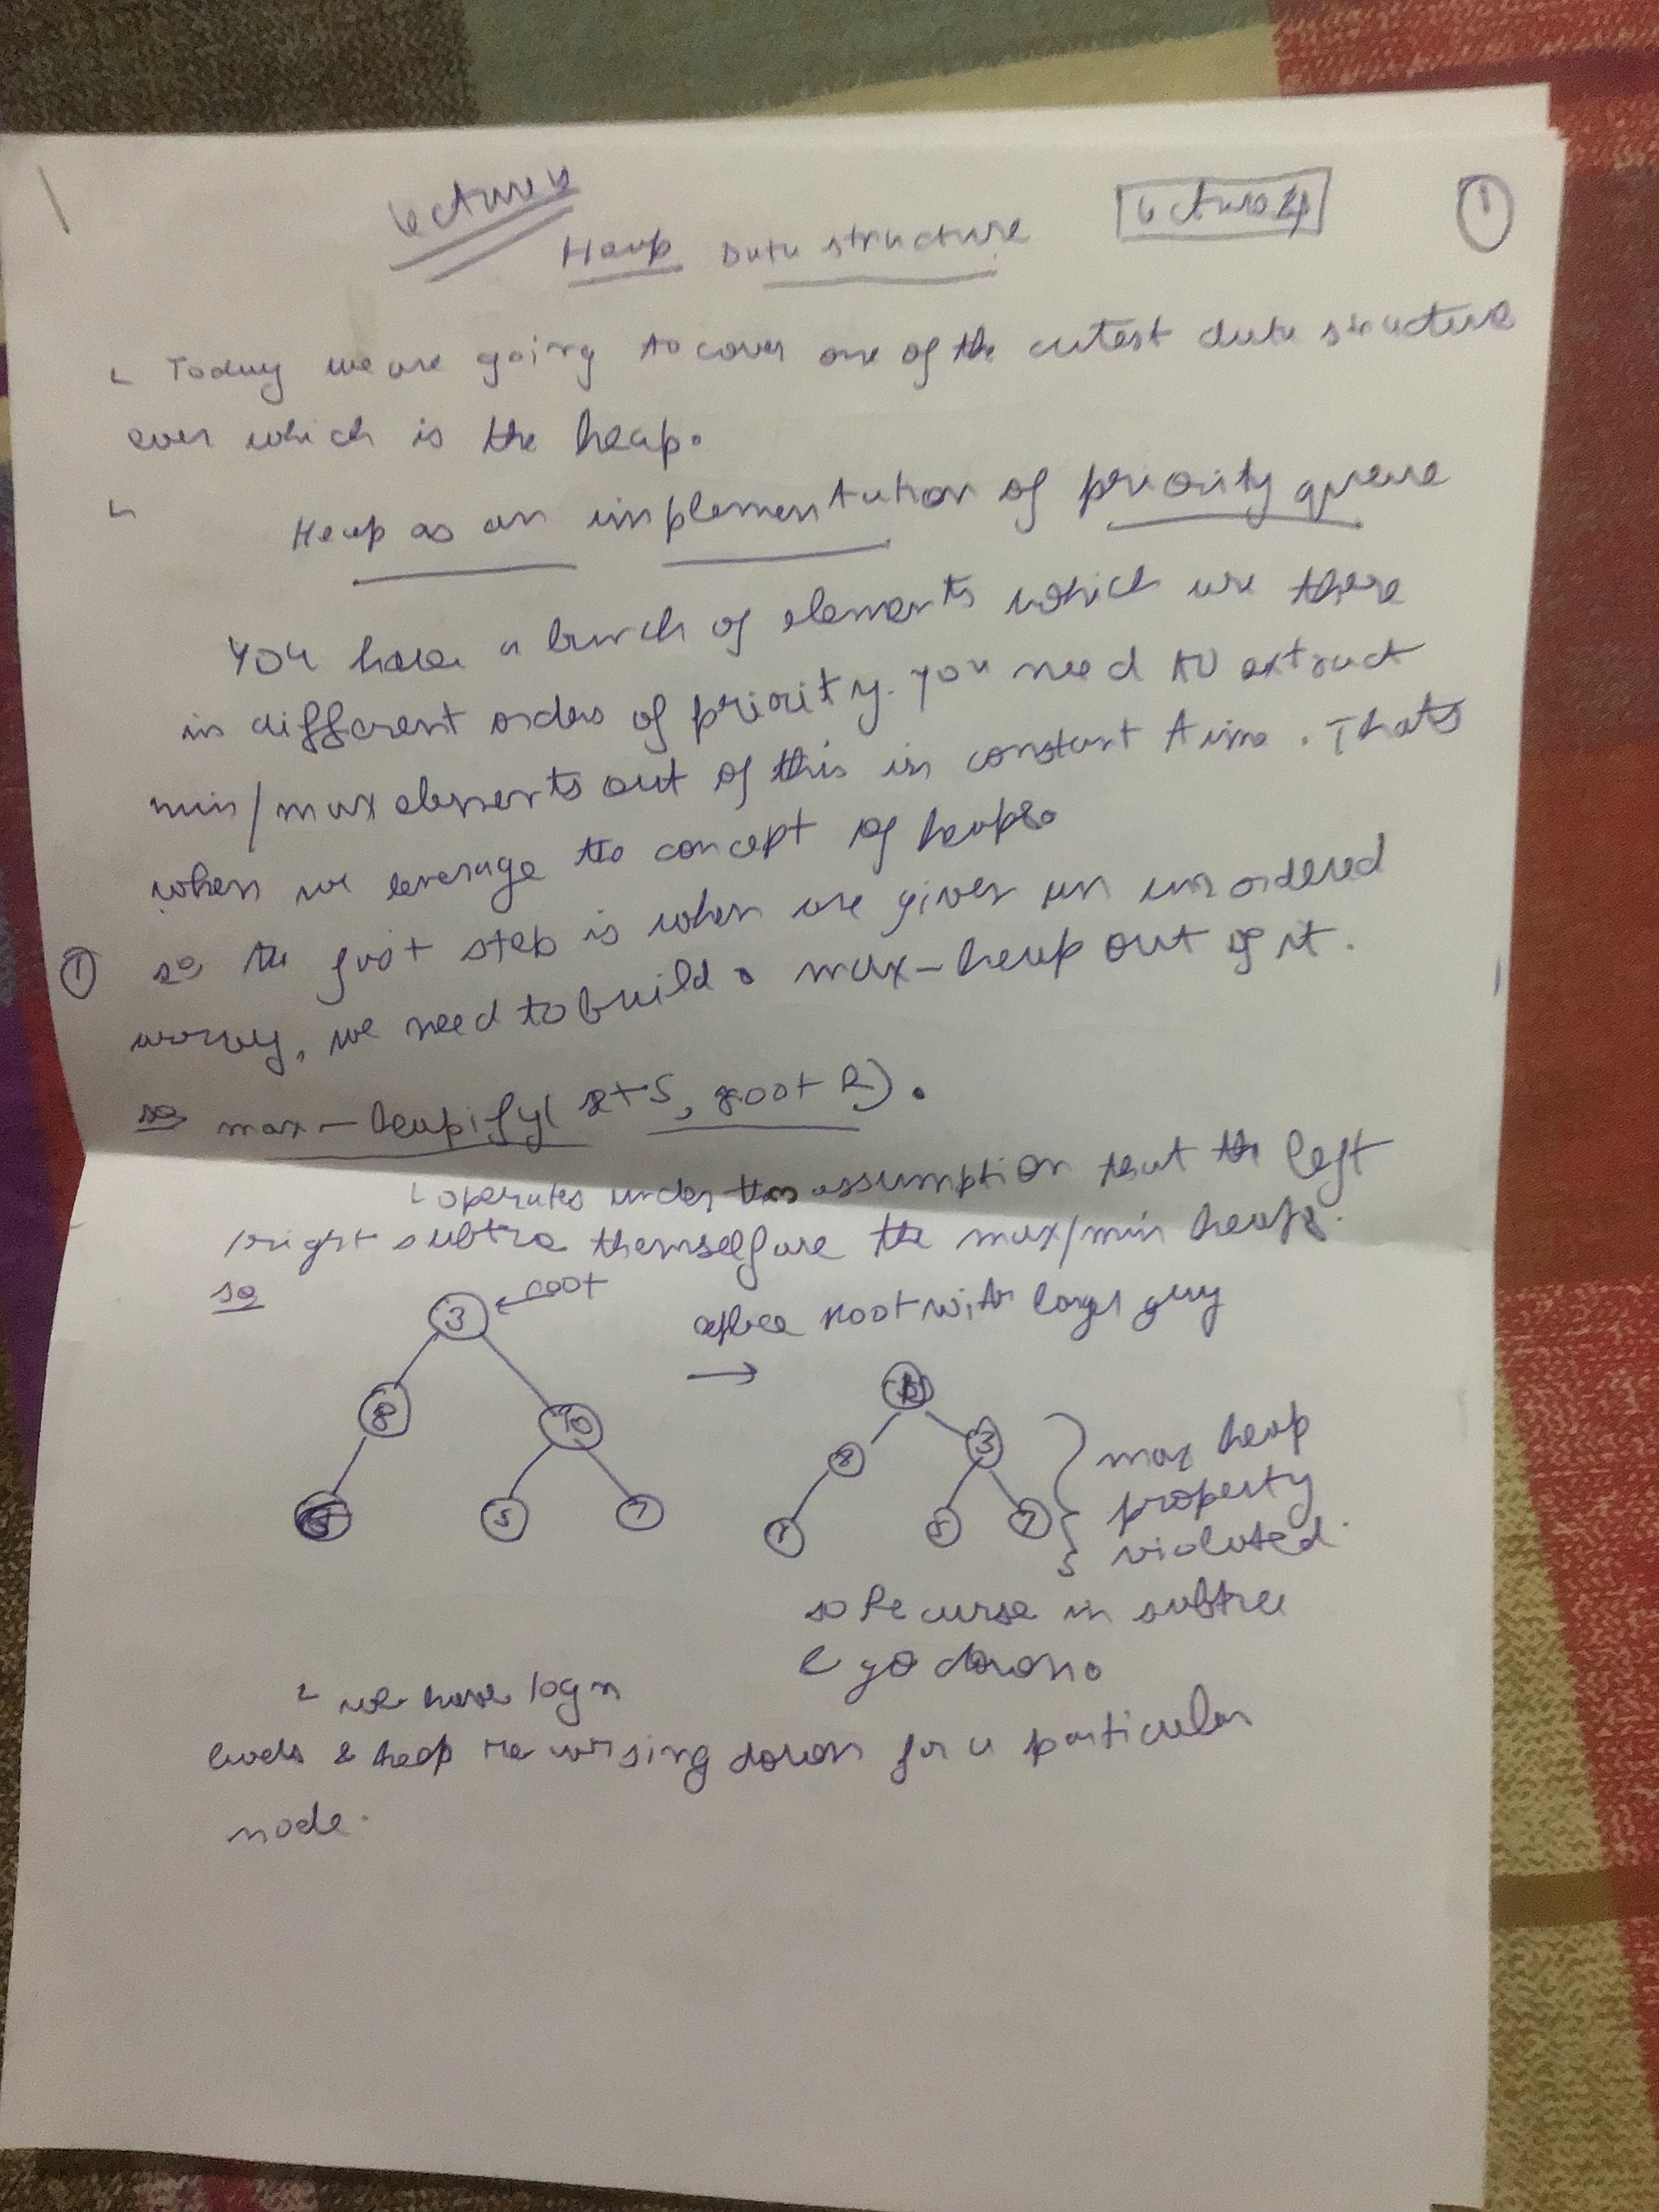 Lecture 4
Lecture 4
1
Heap Data structure
Today we are going to cover one of the cutest data structure
ever which is the heap.
Heap as an implementation of priority queue
You have a bunch of elements which are there
in different orders of priority. You need to extract
min/max elements out of this in constant time. Thats
when we leverage the concept of heaps.
1 so the first step is when we given an unordered
array, we need to build a max-heap out of it.
so max-heapify( root R).
operates under the assumption that the left
/right subtree themself are the max/min heaps.
so
3 root
8 10
5 7
replace root with larger guy
→
10
8 3
5 7
max heap
property
violated.
so Recurse in subtree
& go down.
we have log n
levels & keep recursing down for a particular
node.